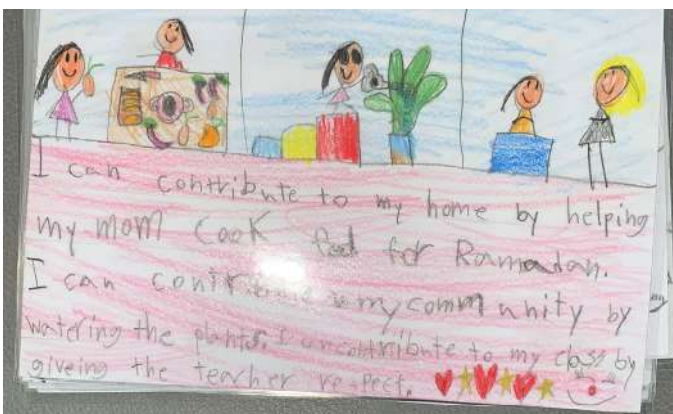 I can contribute to my home by helping
my mom cook food for Ramadan.
I can contribute to my community by
watering the plants. I can contribute to my class by
giveing the teacher respect.